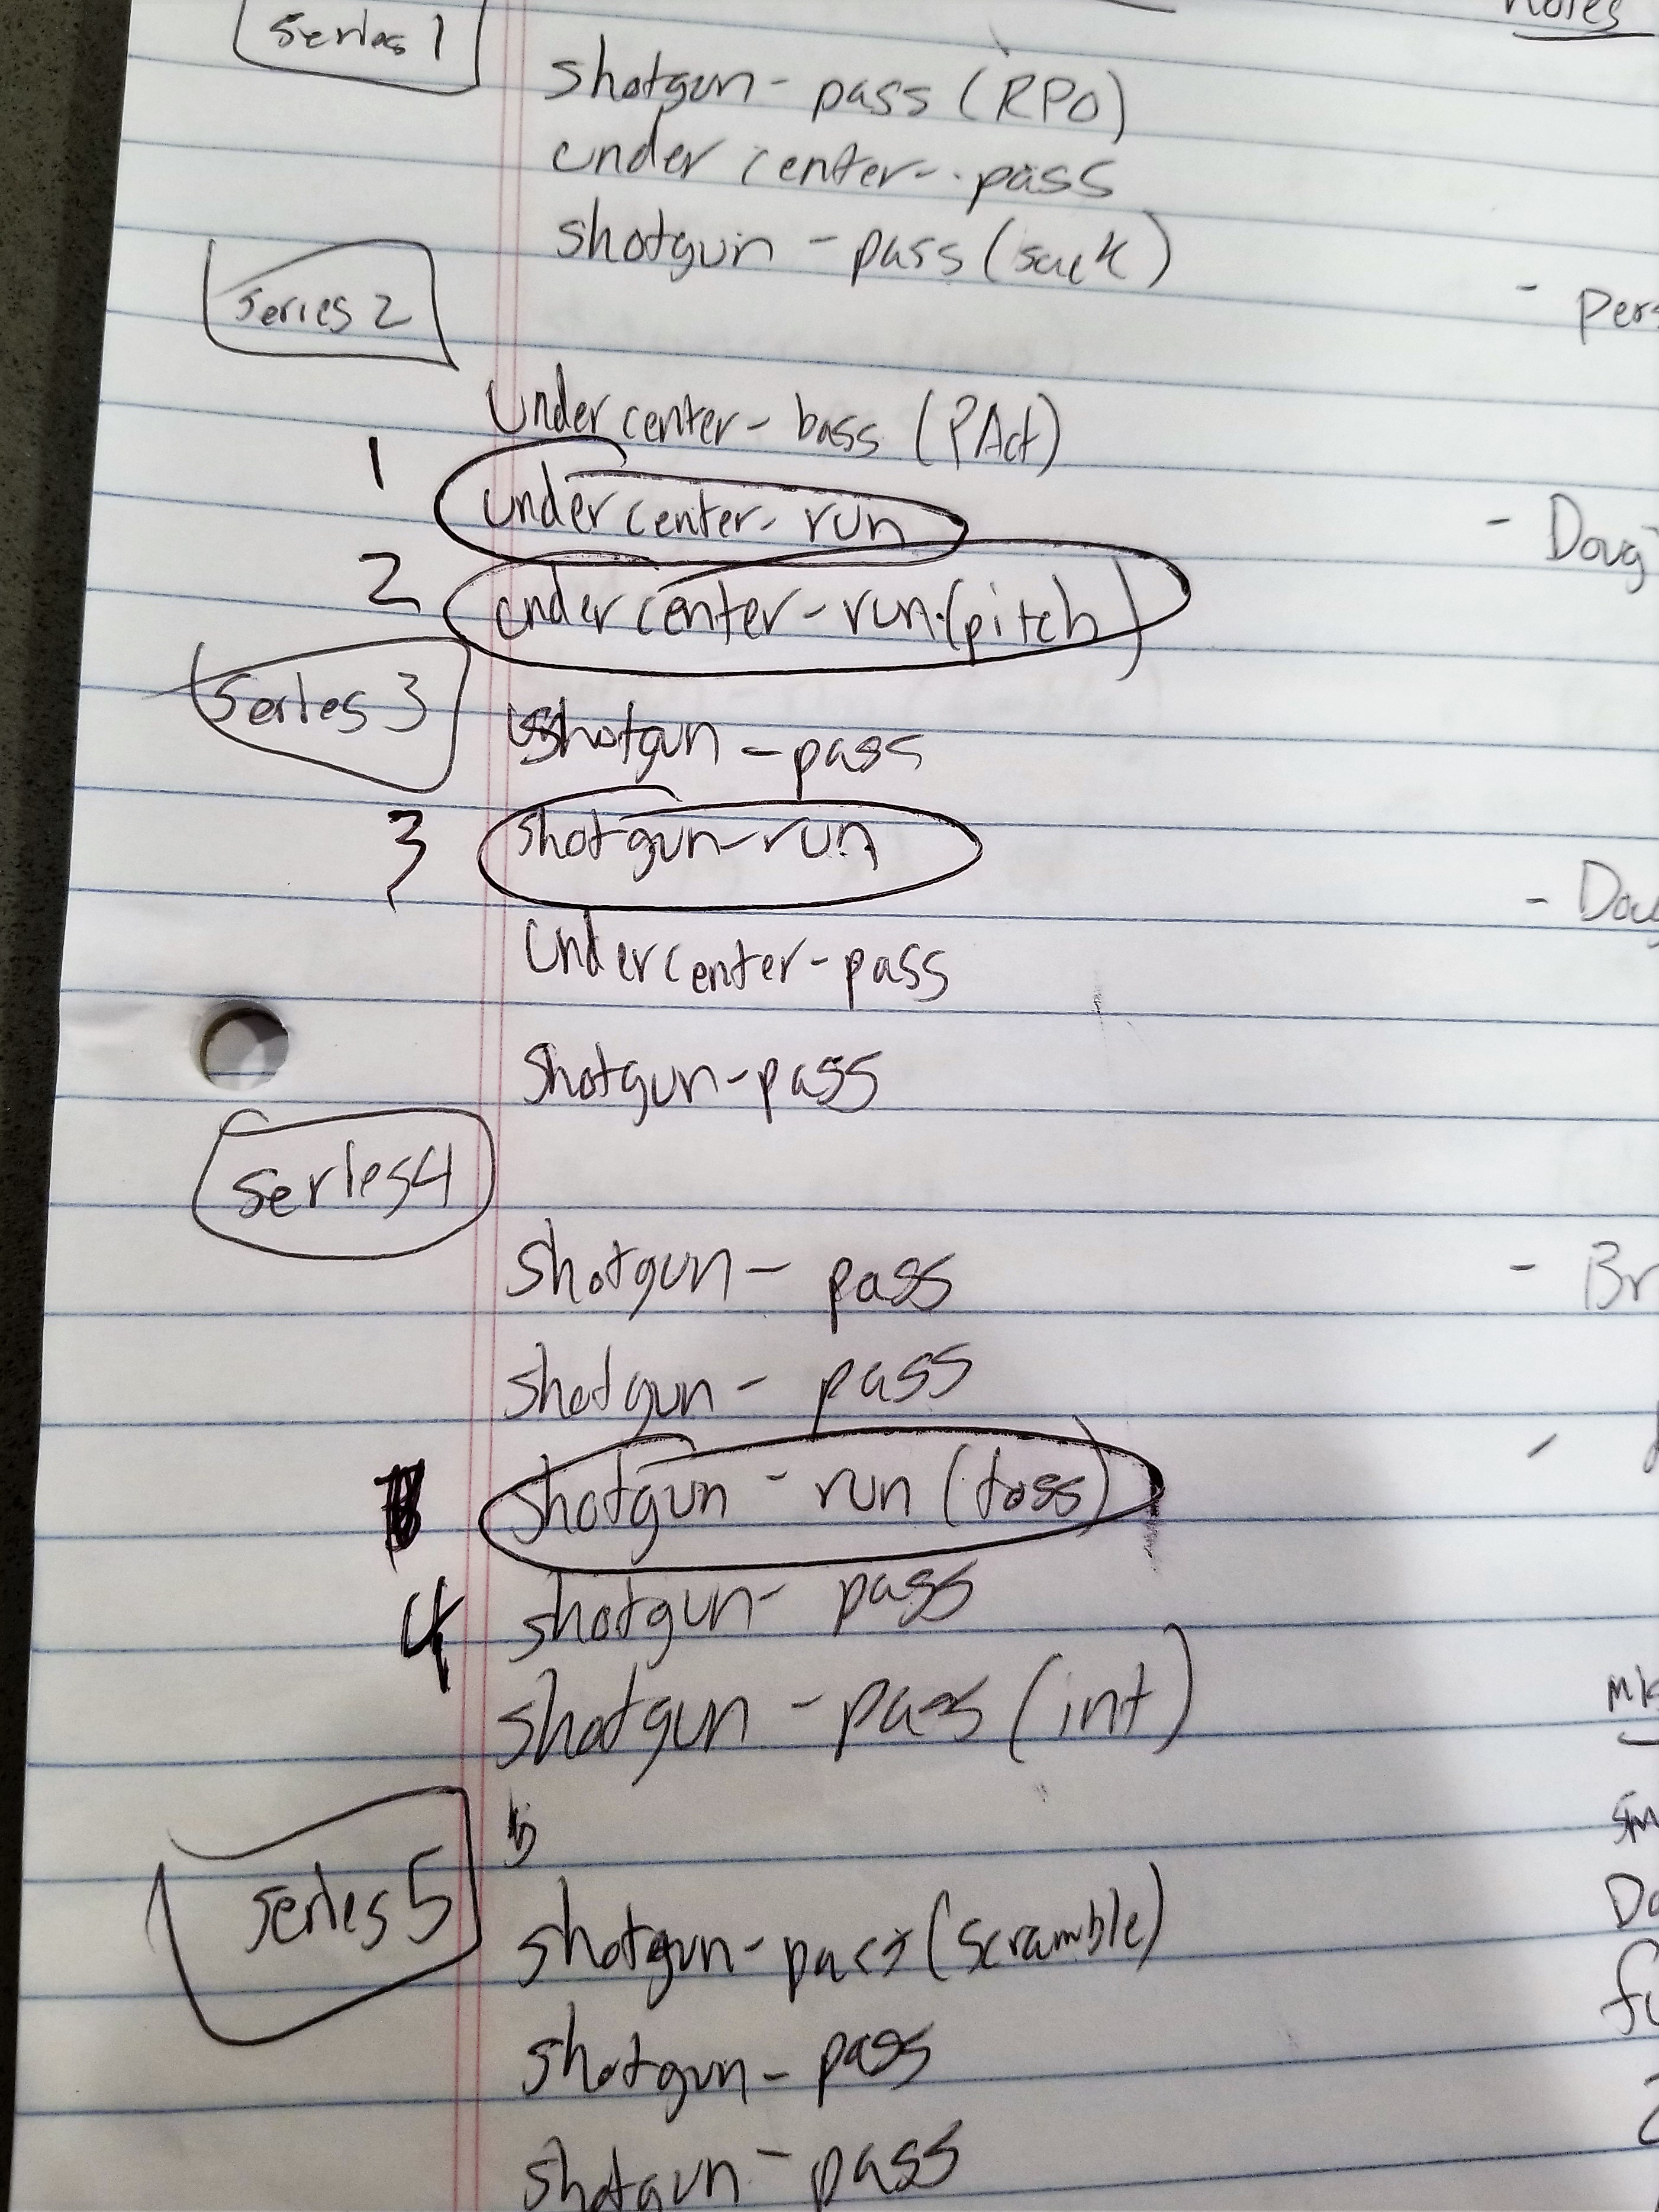 Notes
Series 1
shotgun - pass (RPO)
under center - pass
shotgun - pass (sack)
Series 2
- Pers
undercenter - bass (PAct)
1 undercenter - run
- Doug
2 undercenter - run (pitch)
Series 3
shotgun - pass
3 shotgun - run
- Dou
undercenter - pass
shotgun - pass
Series 4
shotgun - pass
- Br
shotgun - pass
shotgun - run (toss)
4 shotgun - pass
shotgun - pass (int)
Series 5
shotgun - pass (scramble)
shotgun - pass
shotgun - pass